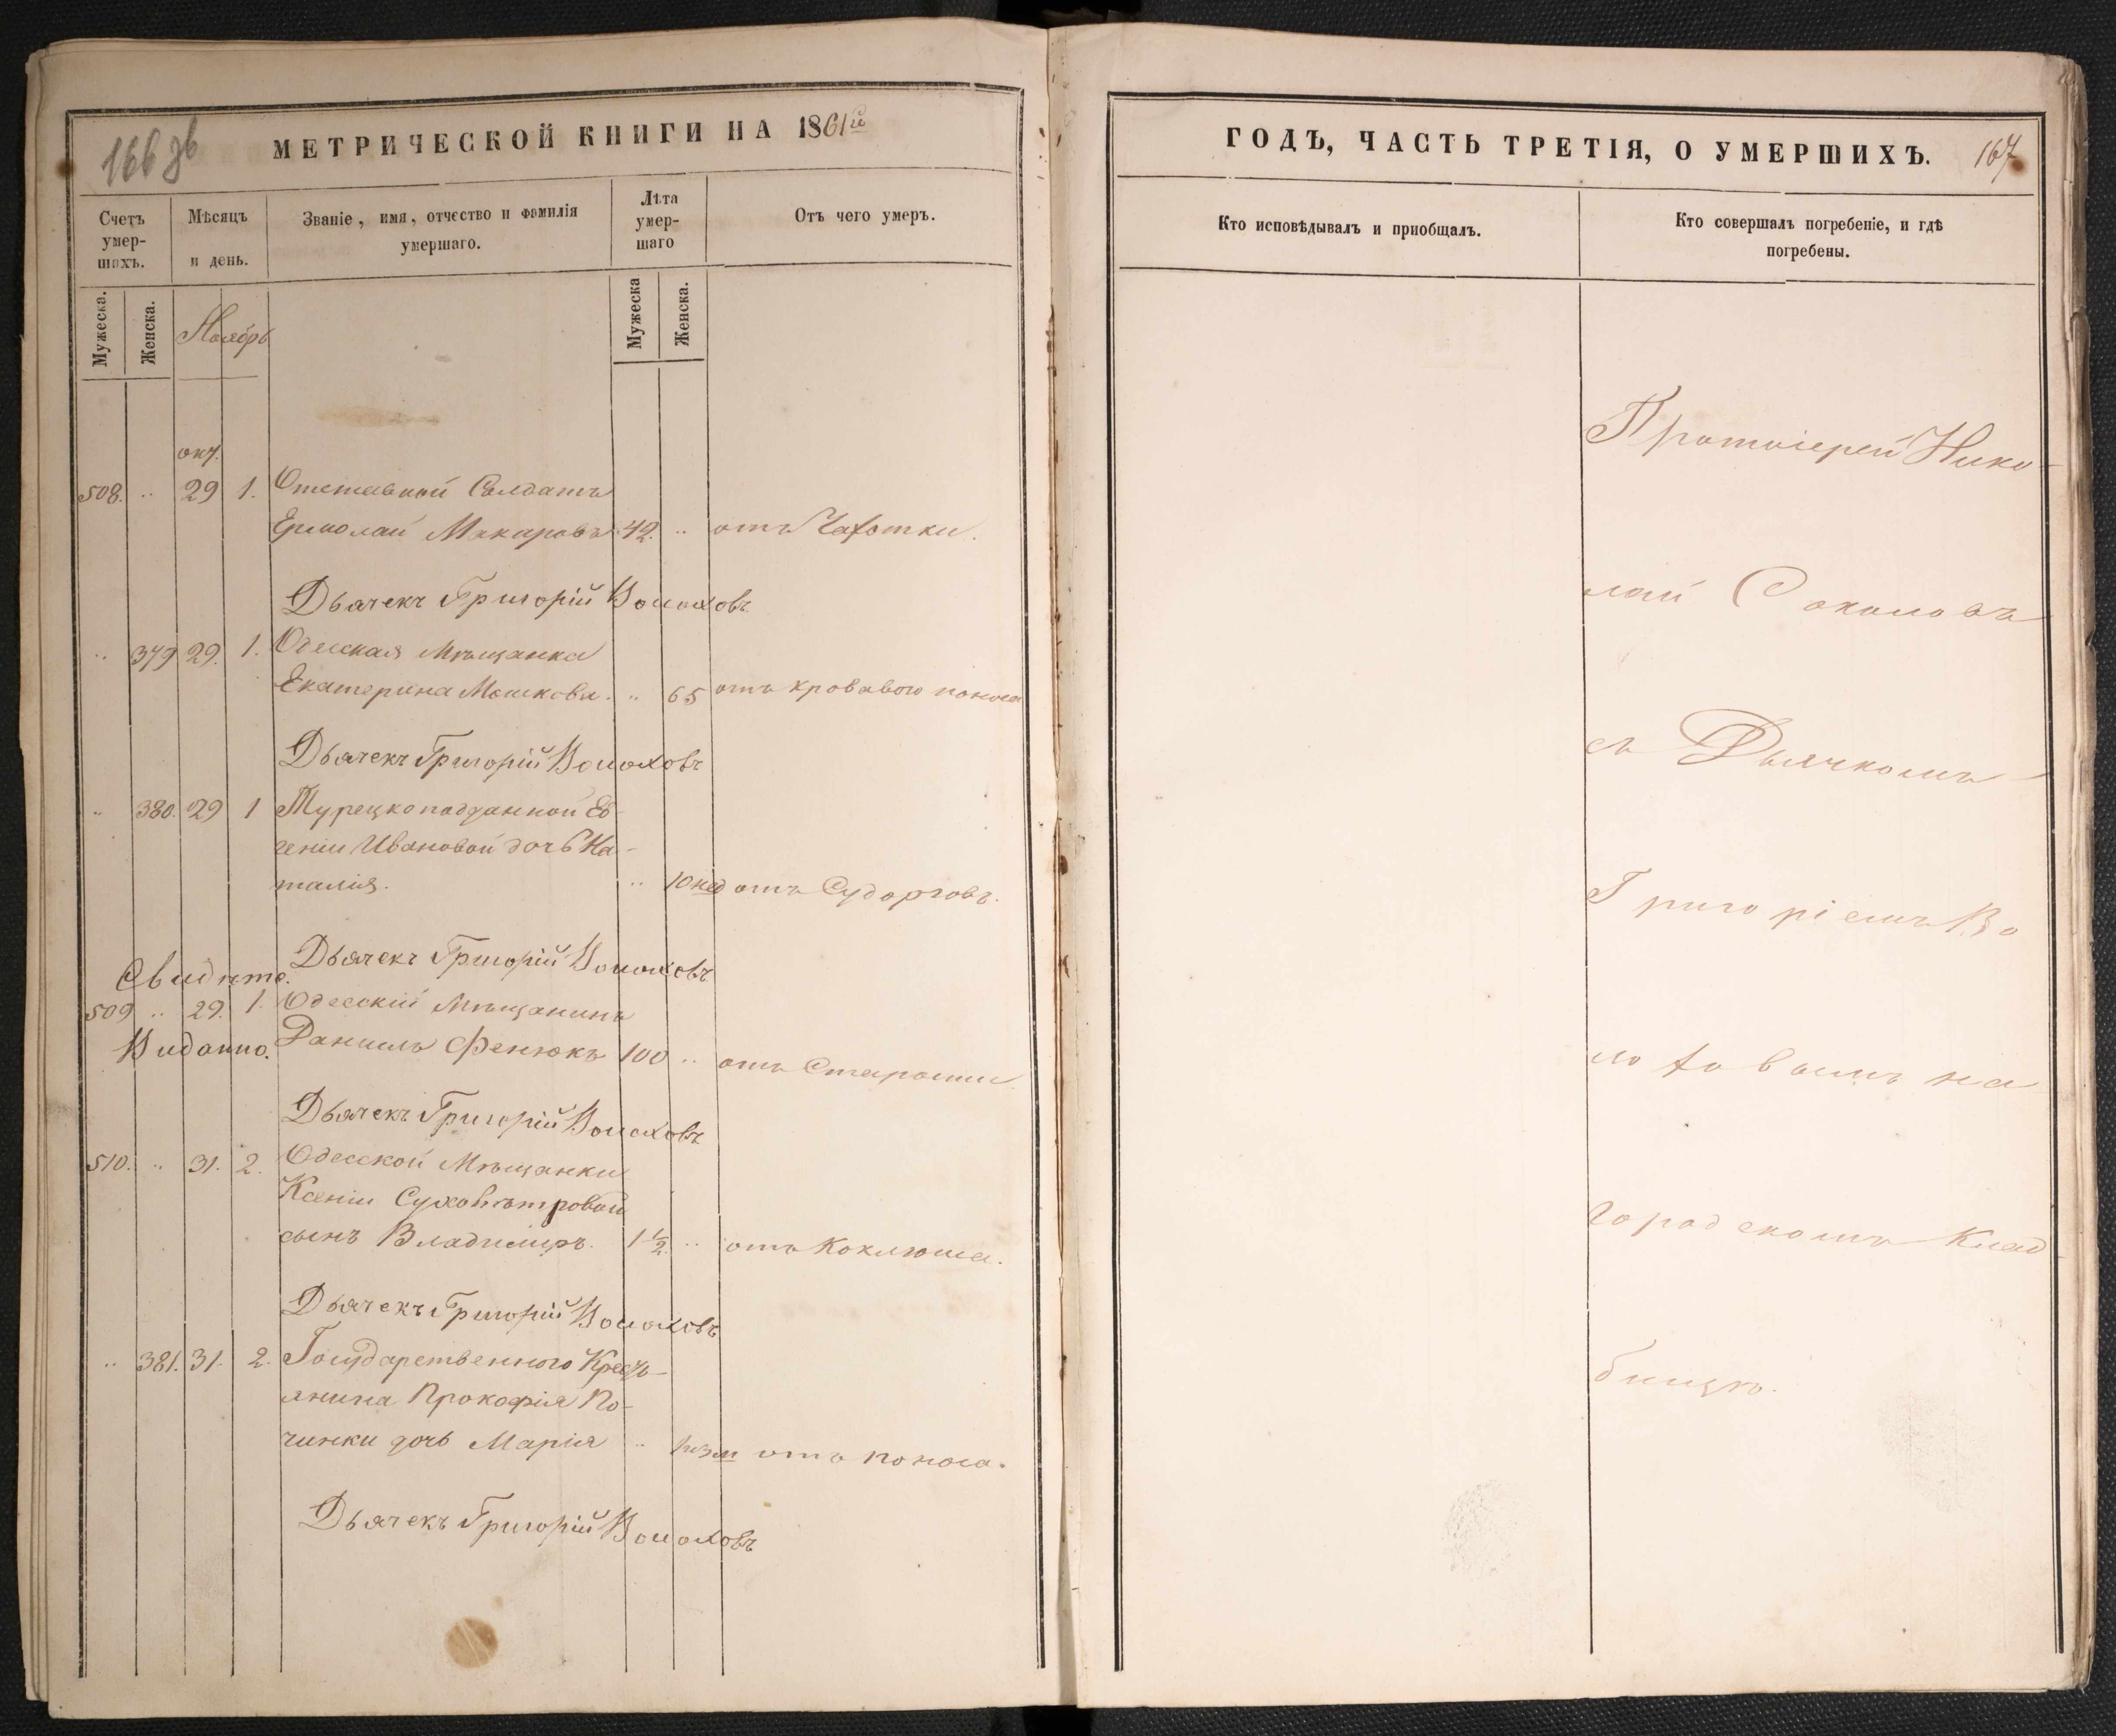 166 зв
МЕТРИЧЕСКОЙ КНИГИ НА 1861й
Счетъ умер- шихъ.
Мѣсяцъ и день.
Званіе, имя, отчество и фамилія умершаго.
Лѣта умер- шаго
Отъ чего умеръ.
Мужеска.
Женска.
Ноябрь
Мужеска
Женска.
окт.
508. .. 29 1. Отставной Солдатъ
Ермолай Макаровъ 42. .. отъ Чахотки.
Дьячекъ Григорій Волоховъ
.. 379 29. 1. Одесская Мѣщанка
Екатерина Машкова. .. 65 отъ кроваваго поноса
Дьячекъ Григорій Волоховъ
.. 380. 29 1 Турецкоподданной Ев-
геніи Ивановой дочь На-
талія. .. 10 нед отъ Судорговъ.
Дьячекъ Григорій Волоховъ
Свидѣте.
509 .. 29. 1. Одесскій Мѣщанинъ
Видатно. Даниилъ Фенюкъ 100 .. отъ Старости
Дьячекъ Григорій Волоховъ
510. .. 31. 2. Одесской Мѣщанки
Ксеніи Суховѣтровой
сынъ Владимиръ. 1 1/2. .. отъ Коклюша.
Дьячекъ Григорій Волоховъ
.. 381. 31. 2. Государственного Кресть-
янина Прокофія По-
чинки дочь Марія .. отъ поноса.
Дьячекъ Григорій Волоховъ
ГОДЪ, ЧАСТЬ ТРЕТІЯ, О УМЕРШИХЪ. 167
Кто исповѣдывалъ и приобщалъ.
Кто совершалъ погребеніе, и гдѣ
погребены.
Протоіерей Нико-
лай Соколовъ
съ Дьячкомъ
Григоріемъ Во
лоховымъ на
городскомъ Клад-
бищѣ.